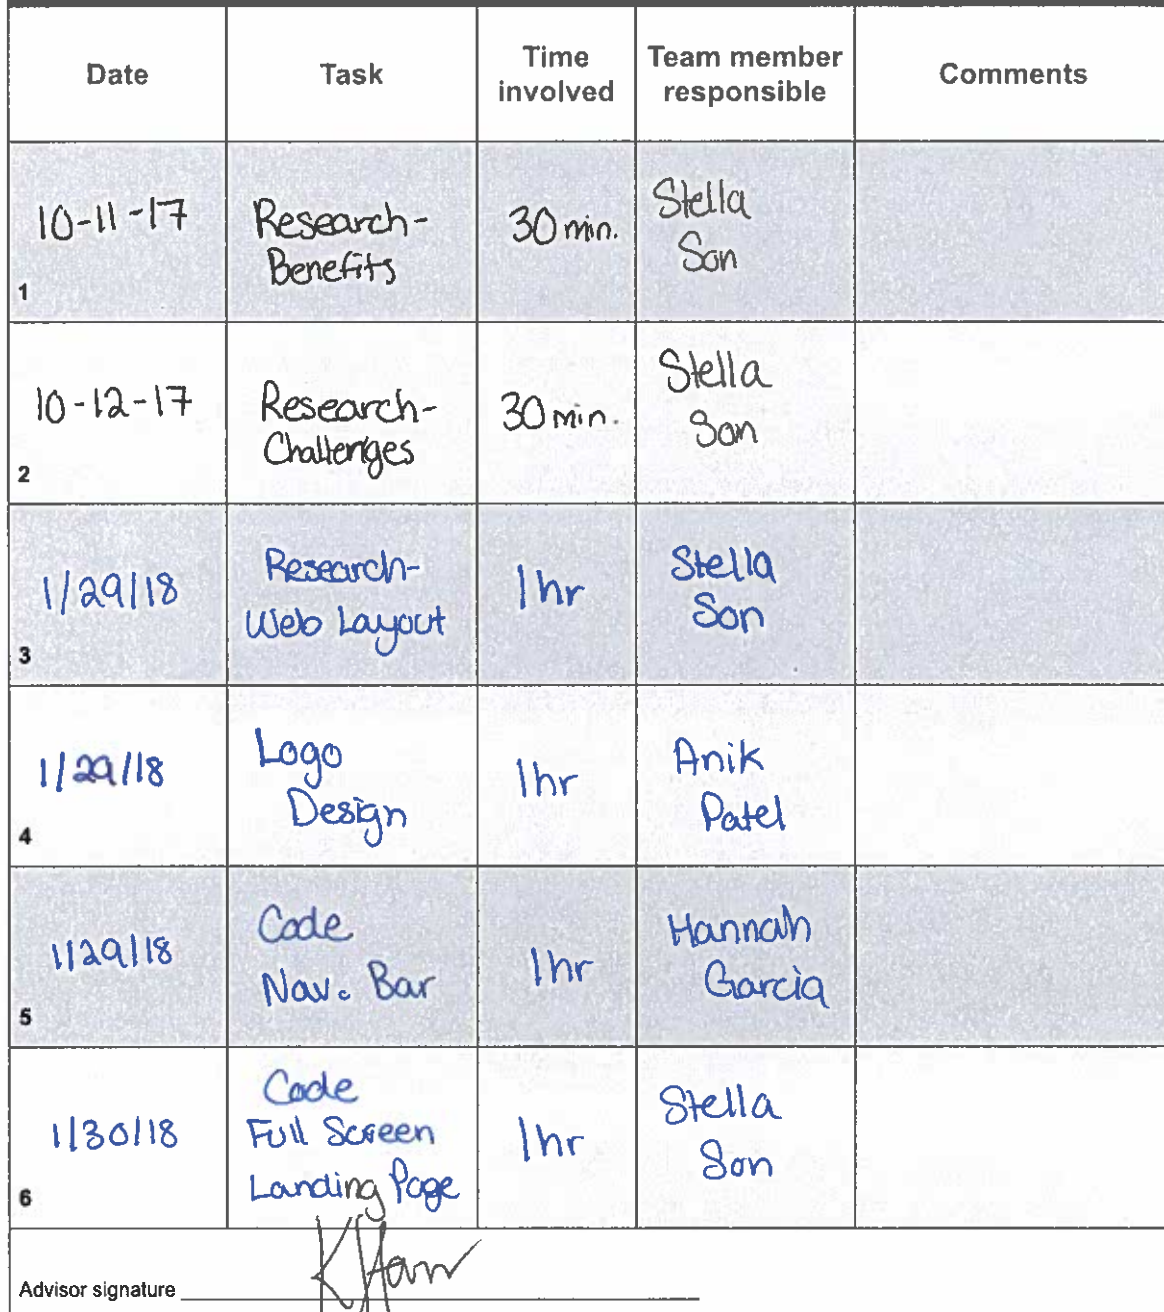 Date Task Time involved Team member responsible Comments
1 10-11-17 Research- Benefits 30 min. Stella Son
2 10-12-17 Research- Challenges 30 min. Stella Son
3 1/29/18 Research- Web Layout 1hr Stella Son
4 1/29/18 Logo Design 1hr Anik Patel
5 1/29/18 Code Nav. Bar 1hr Hannah Garcia
6 1/30/18 Code Full Screen Landing Page 1hr Stella Son
Advisor signature